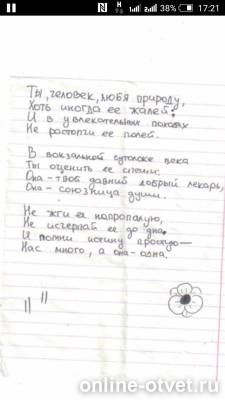 38% 17:21
Ты, человек, любя природу,
Хоть иногда ее жалей;
И в увлекательных походах
Не растопчи ее полей.
В вокзальной сутолоке века
Ты оценить ее спеши:
Она - твой давний добрый лекарь,
Она - союзница души.
Не жги ее напропалую,
Не исчерпай ее до дна.
И помни истину простую —
Нас много, а она - одна.
online-otvet.ru